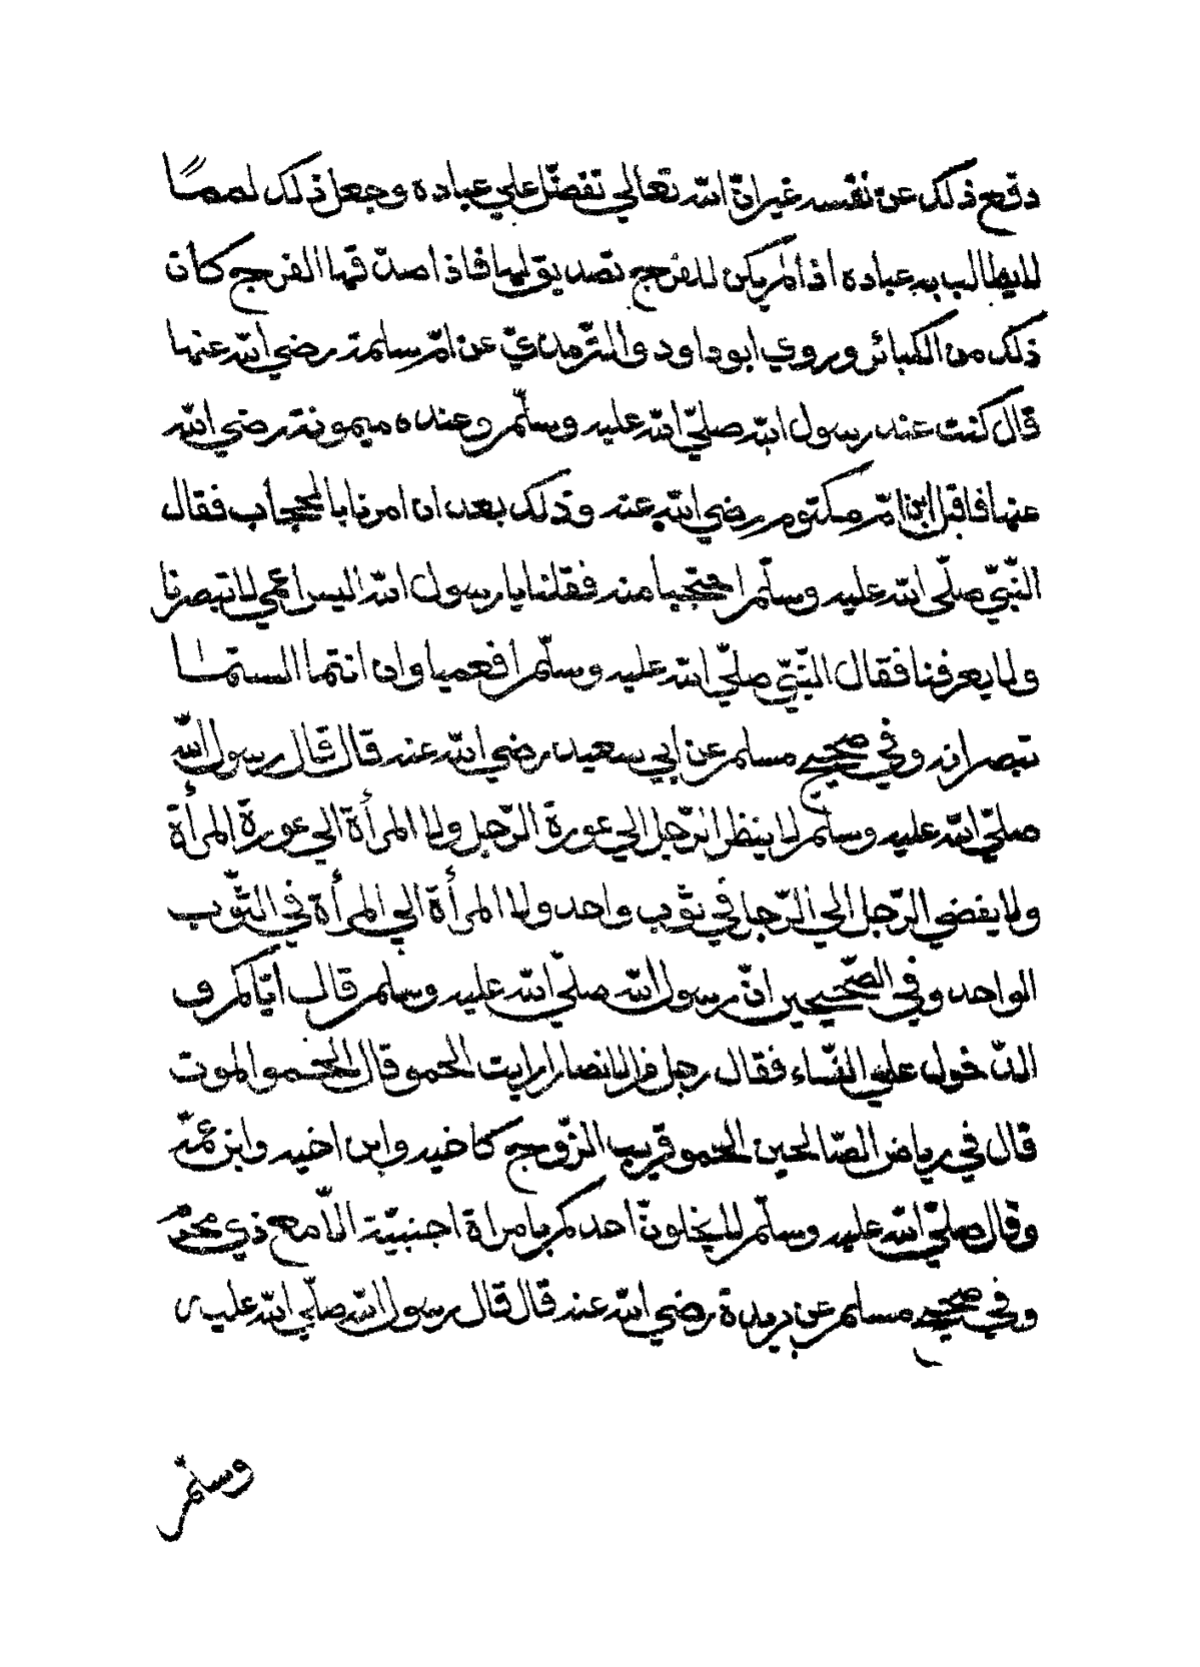 دفع ذلك عن نفسه غير انّ الله تعالي تفضّل علي عباده وجعل ذلك لممًا
لا يطالب به عباده اذا لم يكن للفرج تصديق لها فاذا صدّقها الفرج كان
ذلك من الكبائر وروي ابو داود والترّمذيّ عن امّ سلمة رضي الله عنها
قال كنت عند رسول الله صلّي الله عليه وسلّم وعنده ميمونة رضي الله
عنها فاقبل ابن امّ مكتوم رضي الله عنه وذلك بعد ان امرنا بالحجاب فقال
النّبيّ صلّي الله عليه وسلّم احتجبا منه فقلنا يا رسول الله اليس اعمي لا تبصرنا
ولا يعرفنا فقال النّبيّ صلّي الله عليه وسلّم افعميا وان انتما الستما
تبصرانه وفي صحيح مسلم عن ابي سعيد رضي الله عنه قال قال رسول الله
صلّي الله عليه وسلّم لا ينظر الرّجل الي عورة الرّجل ولا المرأة الي عورة المرأة
ولا يفضي الرّجل الي الرّجل في ثوب واحد ولا المرأة الي المرأة في الثّوب
الواحد وفي الصّحيحين انّ رسول الله صلّي الله عليه وسلم قال ايّاكم و
الدّخول علي النّساء فقال رجل من الانصار ارايت الحمو قال الحمو الموت
قال في رياض الصّالحين الحمو قريب الزّوج كاخيه وابن اخيه وابن عمّه
وقال صلّي الله عليه وسلّم لا يخلونّ احدكم بامراة اجنبيّة الّا مع ذي محرم
وفي صحيح مسلم عن بريدة رضي الله عنه قال قال رسول الله صلّي الله عليه
وسلّم